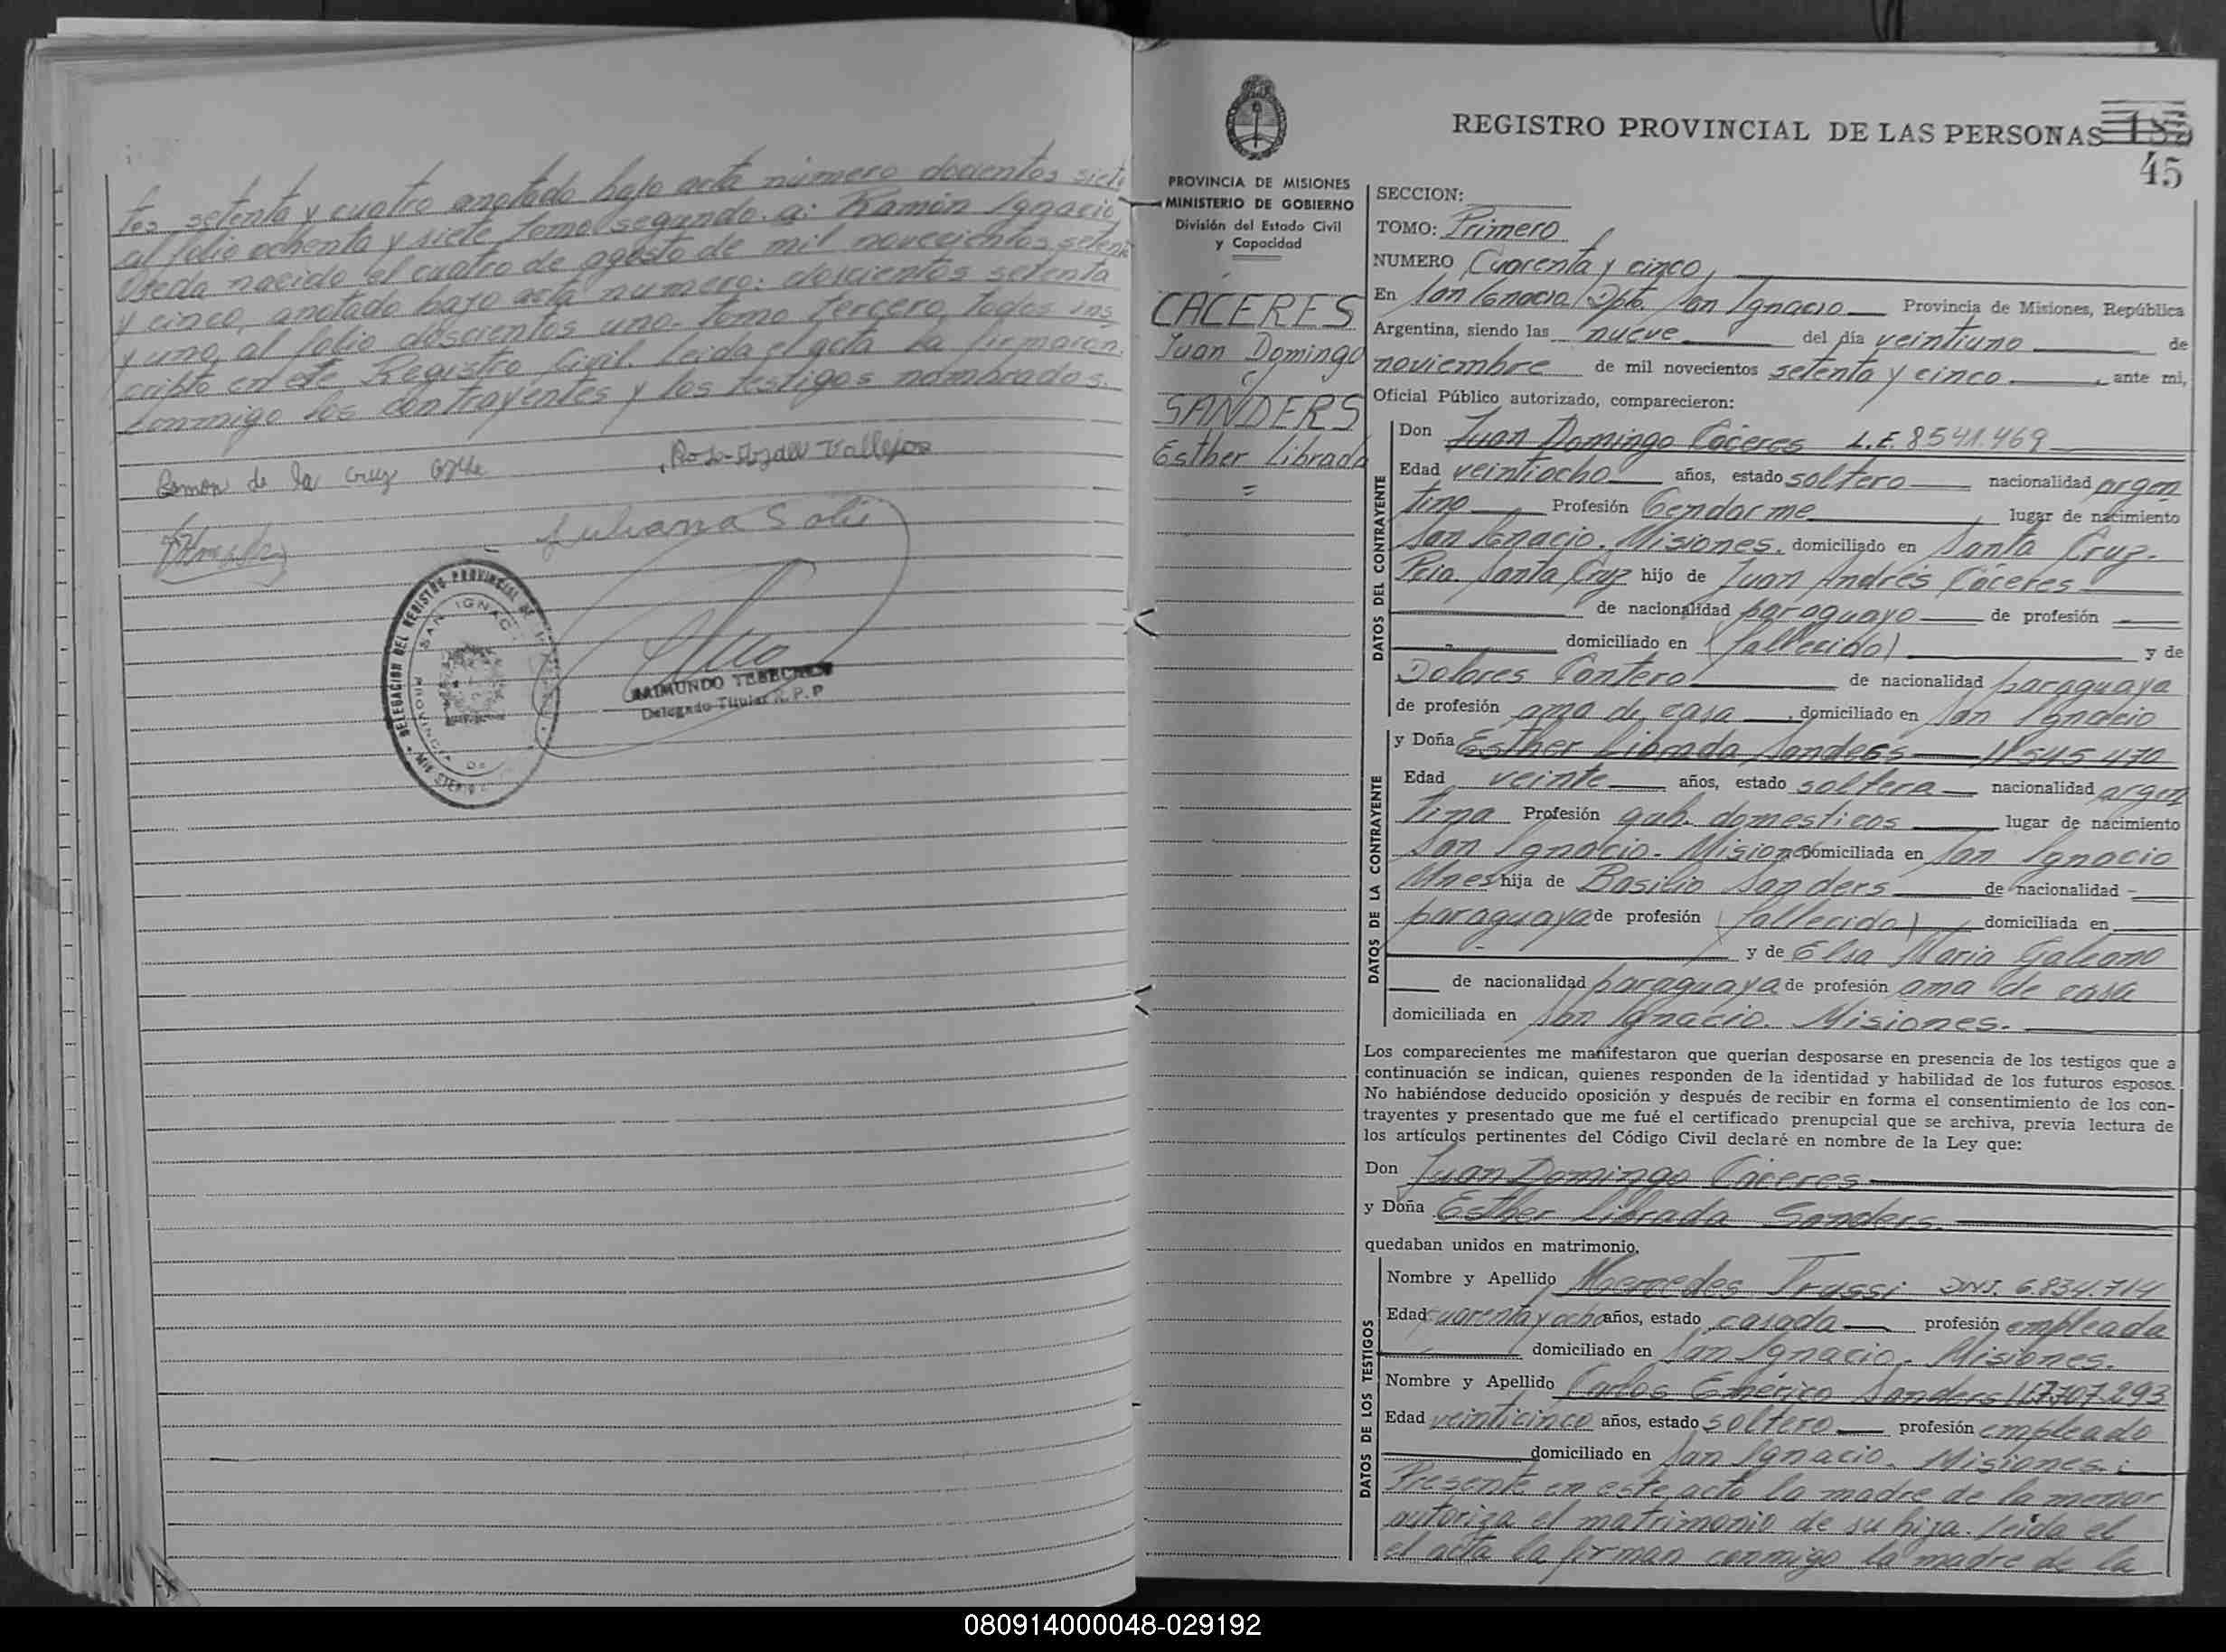 tos setenta y cuatro anotado bajo acta número docientos siete
al folio ochenta y siete tomo segundo. a: Ramón Ignacio
Ojeda nacido el cuatro de agosto de mil novecientos setenta
y cinco, anotado bajo acta numero: doscientos setenta
y uno, al folio doscientos uno- tomo tercero, todos ins
cripto en este Registro Civil. Leída el acta la firmaron
conmigo los contrayentes y los testigos nombrados.
Ramon de la Cruz
Vallejos
Juliana Solis
DELEGACION DEL REGISTRO PROVINCIAL DE
SAN IGNACIO
RAIMUNDO
Delegado Titular R.P.P
REGISTRO PROVINCIAL DE LAS PERSONAS
45
PROVINCIA DE MISIONES
MINISTERIO DE GOBIERNO
División del Estado Civil
y Capacidad
CACERES
Juan Domingo
c/
SANDERS
Esther Librada
=
SECCION:
TOMO: Primero
NUMERO Cuarenta y cinco,
En San Ignacio Dpto. San Ignacio Provincia de Misiones, República
Argentina, siendo las nueve del día veintiuno de
noviembre de mil novecientos setenta y cinco, ante mi,
Oficial Público autorizado, comparecieron:
DATOS DEL CONTRAYENTE
Don Juan Domingo Cáceres L.E. 8541.469
Edad veintiocho años, estado soltero nacionalidad argen
tino Profesión Gendarme lugar de nacimiento
San Ignacio. Misiones. domiciliado en Santa Cruz.
Pcia. Santa Cruz hijo de Juan Andrés Cáceres
de nacionalidad paraguayo de profesión
domiciliado en (fallecido) y de
Dolores Cantero de nacionalidad paraguaya
de profesión ama de casa, domiciliado en San Ignacio
DATOS DE LA CONTRAYENTE
y Doña Esther Librada Sanders 11545470
Edad veinte años, estado soltera nacionalidad argen
tina Profesión qub. domesticos lugar de nacimiento
San Ignacio- Misiones domiciliada en San Ignacio
Mnes hija de Basilio Sanders de nacionalidad -
paraguaya de profesión (fallecido) domiciliada en
y de Elsa Maria Galeano
de nacionalidad paraguaya de profesión ama de casa
domiciliada en San Ignacio. Misiones.
Los comparecientes me manifestaron que querían desposarse en presencia de los testigos que a
continuación se indican, quienes responden de la identidad y habilidad de los futuros esposos.
No habiéndose deducido oposición y después de recibir en forma el consentimiento de los con-
trayentes y presentado que me fué el certificado prenupcial que se archiva, previa lectura de
los artículos pertinentes del Código Civil declaré en nombre de la Ley que:
Don Juan Domingo Cáceres
y Doña Esther Librada Sanders.
quedaban unidos en matrimonio.
DATOS DE LOS TESTIGOS
Nombre y Apellido Mercedes Trussi DNI. 6.834.714
Edad cuarenta y ocho años, estado casada profesión empleada
domiciliado en San Ignacio. Misiones.
Nombre y Apellido Carlos Emérico Sanders
Edad veinticinco años, estado soltero profesión empleado
domiciliado en San Ignacio. Misiones.
Presente en este acto la madre de la menor
autoriza el matrimonio de su hija. Leída el
el acta la firman conmigo la madre de la
080914000048-029192